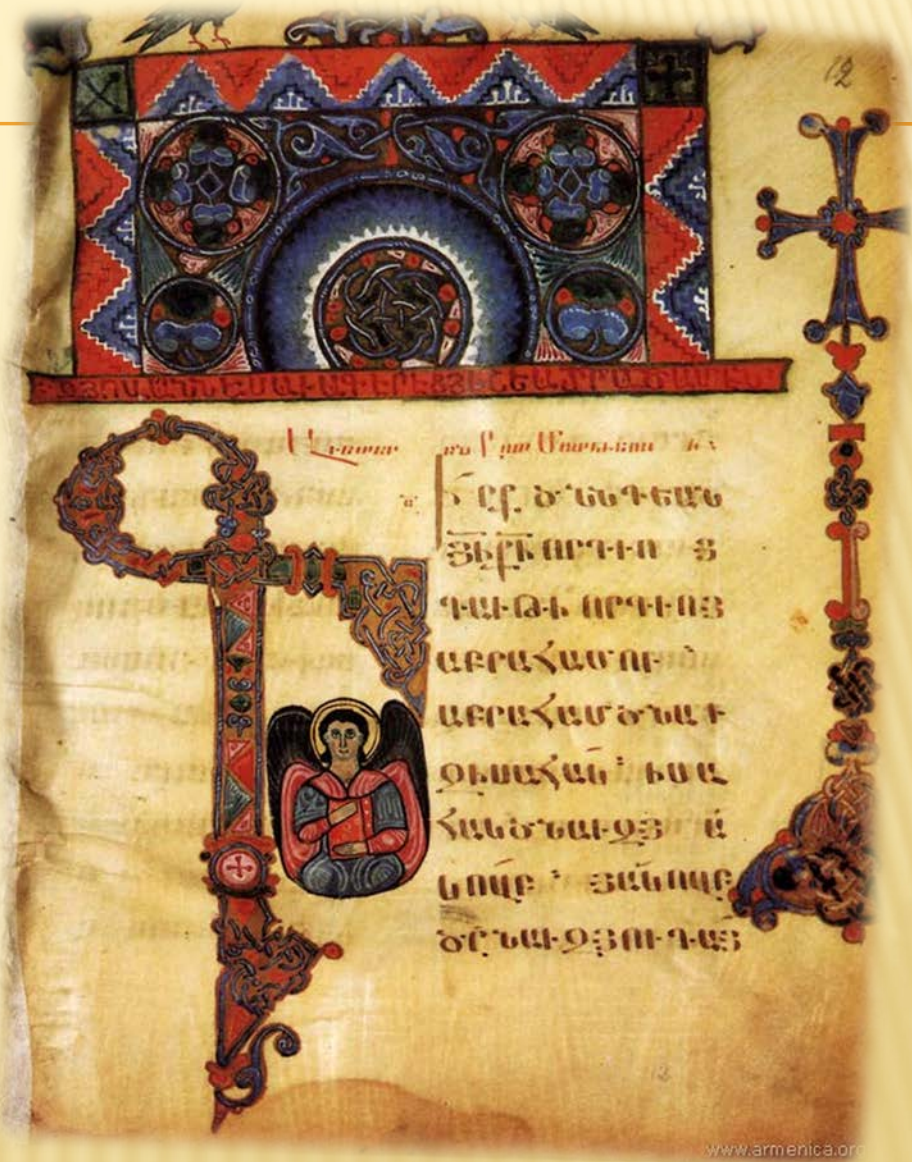 12
Աւետարան ըստ
ԳԻՐՔ ԾՆՆԴԵԱՆ
ՅԻ ՔԻ ՈՐԴՒՈՅ
ԴԱՒԹԻ ՈՐԴՒՈՅ
ԱԲՐԱՀԱՄՈՒ :
ԱԲՐԱՀԱՄ ԾՆԱՒ
ԶԻՍԱՀԱԿ : ԻՍԱ
ՀԱԿ ԾՆԱՒ ԶՅԱ
ԿՈՎԲ : ՅԱԿՈՎԲ
ԾՆԱՒ ԶՅՈՒԴԱՅ
www.armenica.org